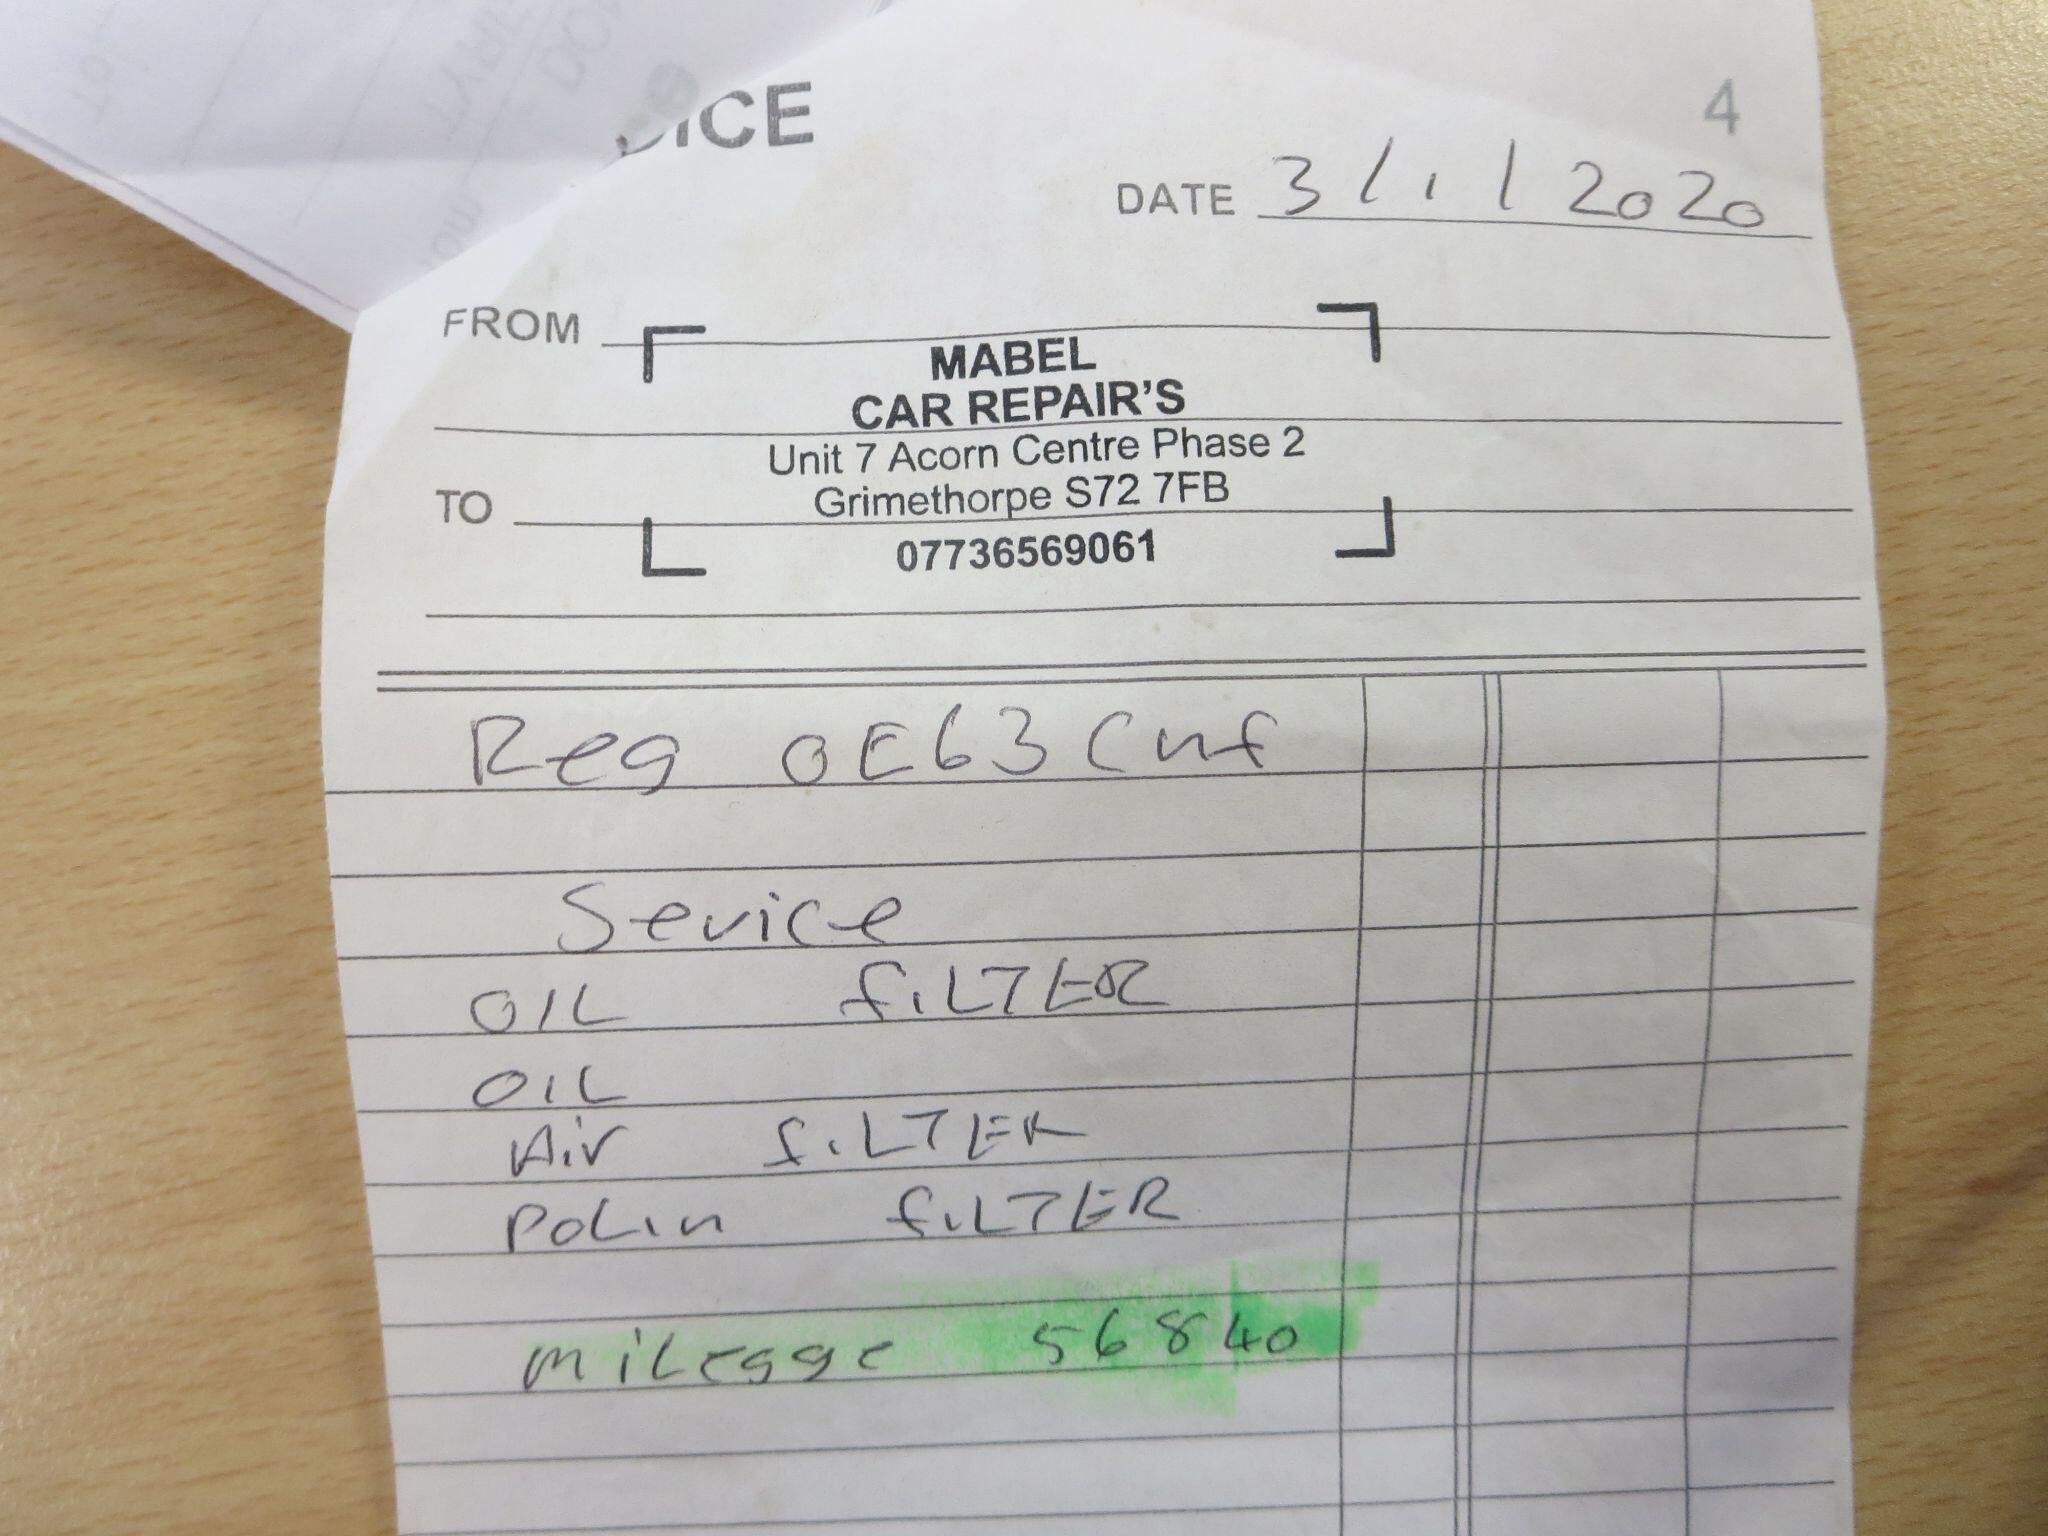 OICE
4
DATE 3/1/2020
FROM
MABEL
CAR REPAIR'S
Unit 7 Acorn Centre Phase 2
Grimethorpe S72 7FB
TO
07736569061
Reg OE63 Cnf
Sevice
OIL fiLTER
OIL
Air fiLTER
PoLin fiLTER
miLegge 56840